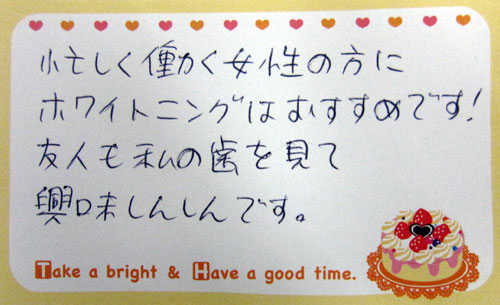 忙しく働く女性の方に
ホワイトニングはおすすめです!
友人も私の歯を見て
興味しんしんです。
Take a bright & Have a good time.